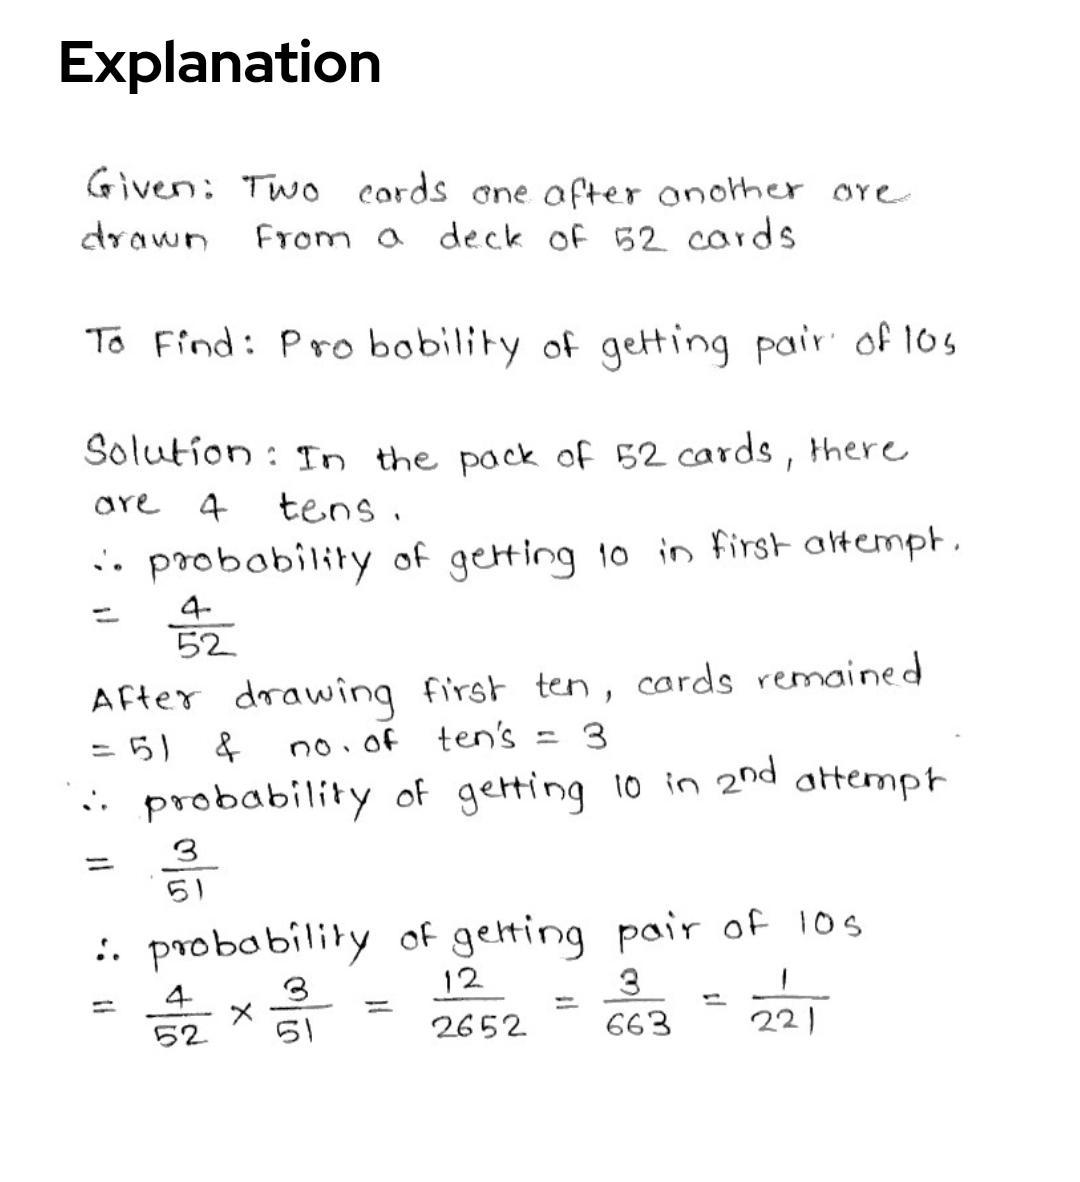 Explanation
Given: Two cards one after another are
drawn from a deck of 52 cards
To Find: Probability of getting pair of 10s
Solution: In the pack of 52 cards, there
are 4 tens.
∴ probability of getting 10 in first attempt.
= 4/52
After drawing first ten, cards remained
= 51 & no. of ten's = 3
∴ probability of getting 10 in 2nd attempt
= 3/51
∴ probability of getting pair of 10s
= 4/52 × 3/51 = 12/2652 = 3/663 = 1/221